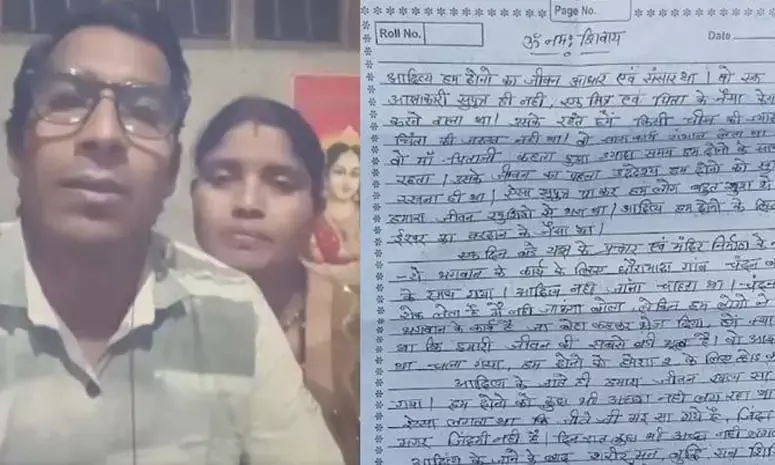 Page No.
Roll No.
ॐ नमः शिवाय
Date
आदित्य हम दोनो का जीवन आधार एवं संसार था। वो एक
आज्ञाकारी सुपुत्र ही नहीं, एक मित्र एवं पिता के जैसा
करने वाला था। उसके रहते हमें किसी चीज की
चिंता की जरूरत नहीं था। वो सारा कार्य संभाल लेता था
वो माँ पिताजी कहता हुआ ज्यादा समय हम दोनों के साथ
रहता। उसके जीवन का पहला उद्देश्य हम दोनों को
रखना ही था। ऐसा सुपुत्र पाकर हम लोग बहुत खुश थे
हमारा जीवन खुशियों से भरा था। आदित्य हम दोनो के लिए
ईश्वर का वरदान के जैसा था।
एक दिन के प्रचार एवं मंदिर निर्माण
भगवान के कार्य के लिए गांव चंदन
के साथ गया। आदित्य नहीं जाना चाहता था।
मैं नहीं जाऊंगा बोला, लेकिन हम लोगो ने
भगवान के कार्य है जा बेटा कहकर भेज दिया, हमे क्या
था कि हमारी जीवन की सबसे बड़ी भूल है। वो
था चला गया, हम दोनो को हमेशा २ के लिए
आदित्य के जाते ही हमारा जीवन खत्म सा
गया। हम दोनो को कुछ भी अच्छा नहीं लग रहा था
ऐसा लगता था कि जीते जी मर सा गये है, जिंदा
मगर जिंदगी नहीं है। दिन रात कुछ भी अच्छा नहीं
आदित्य के जाने के बाद शरीर, मन, बुद्धि सब